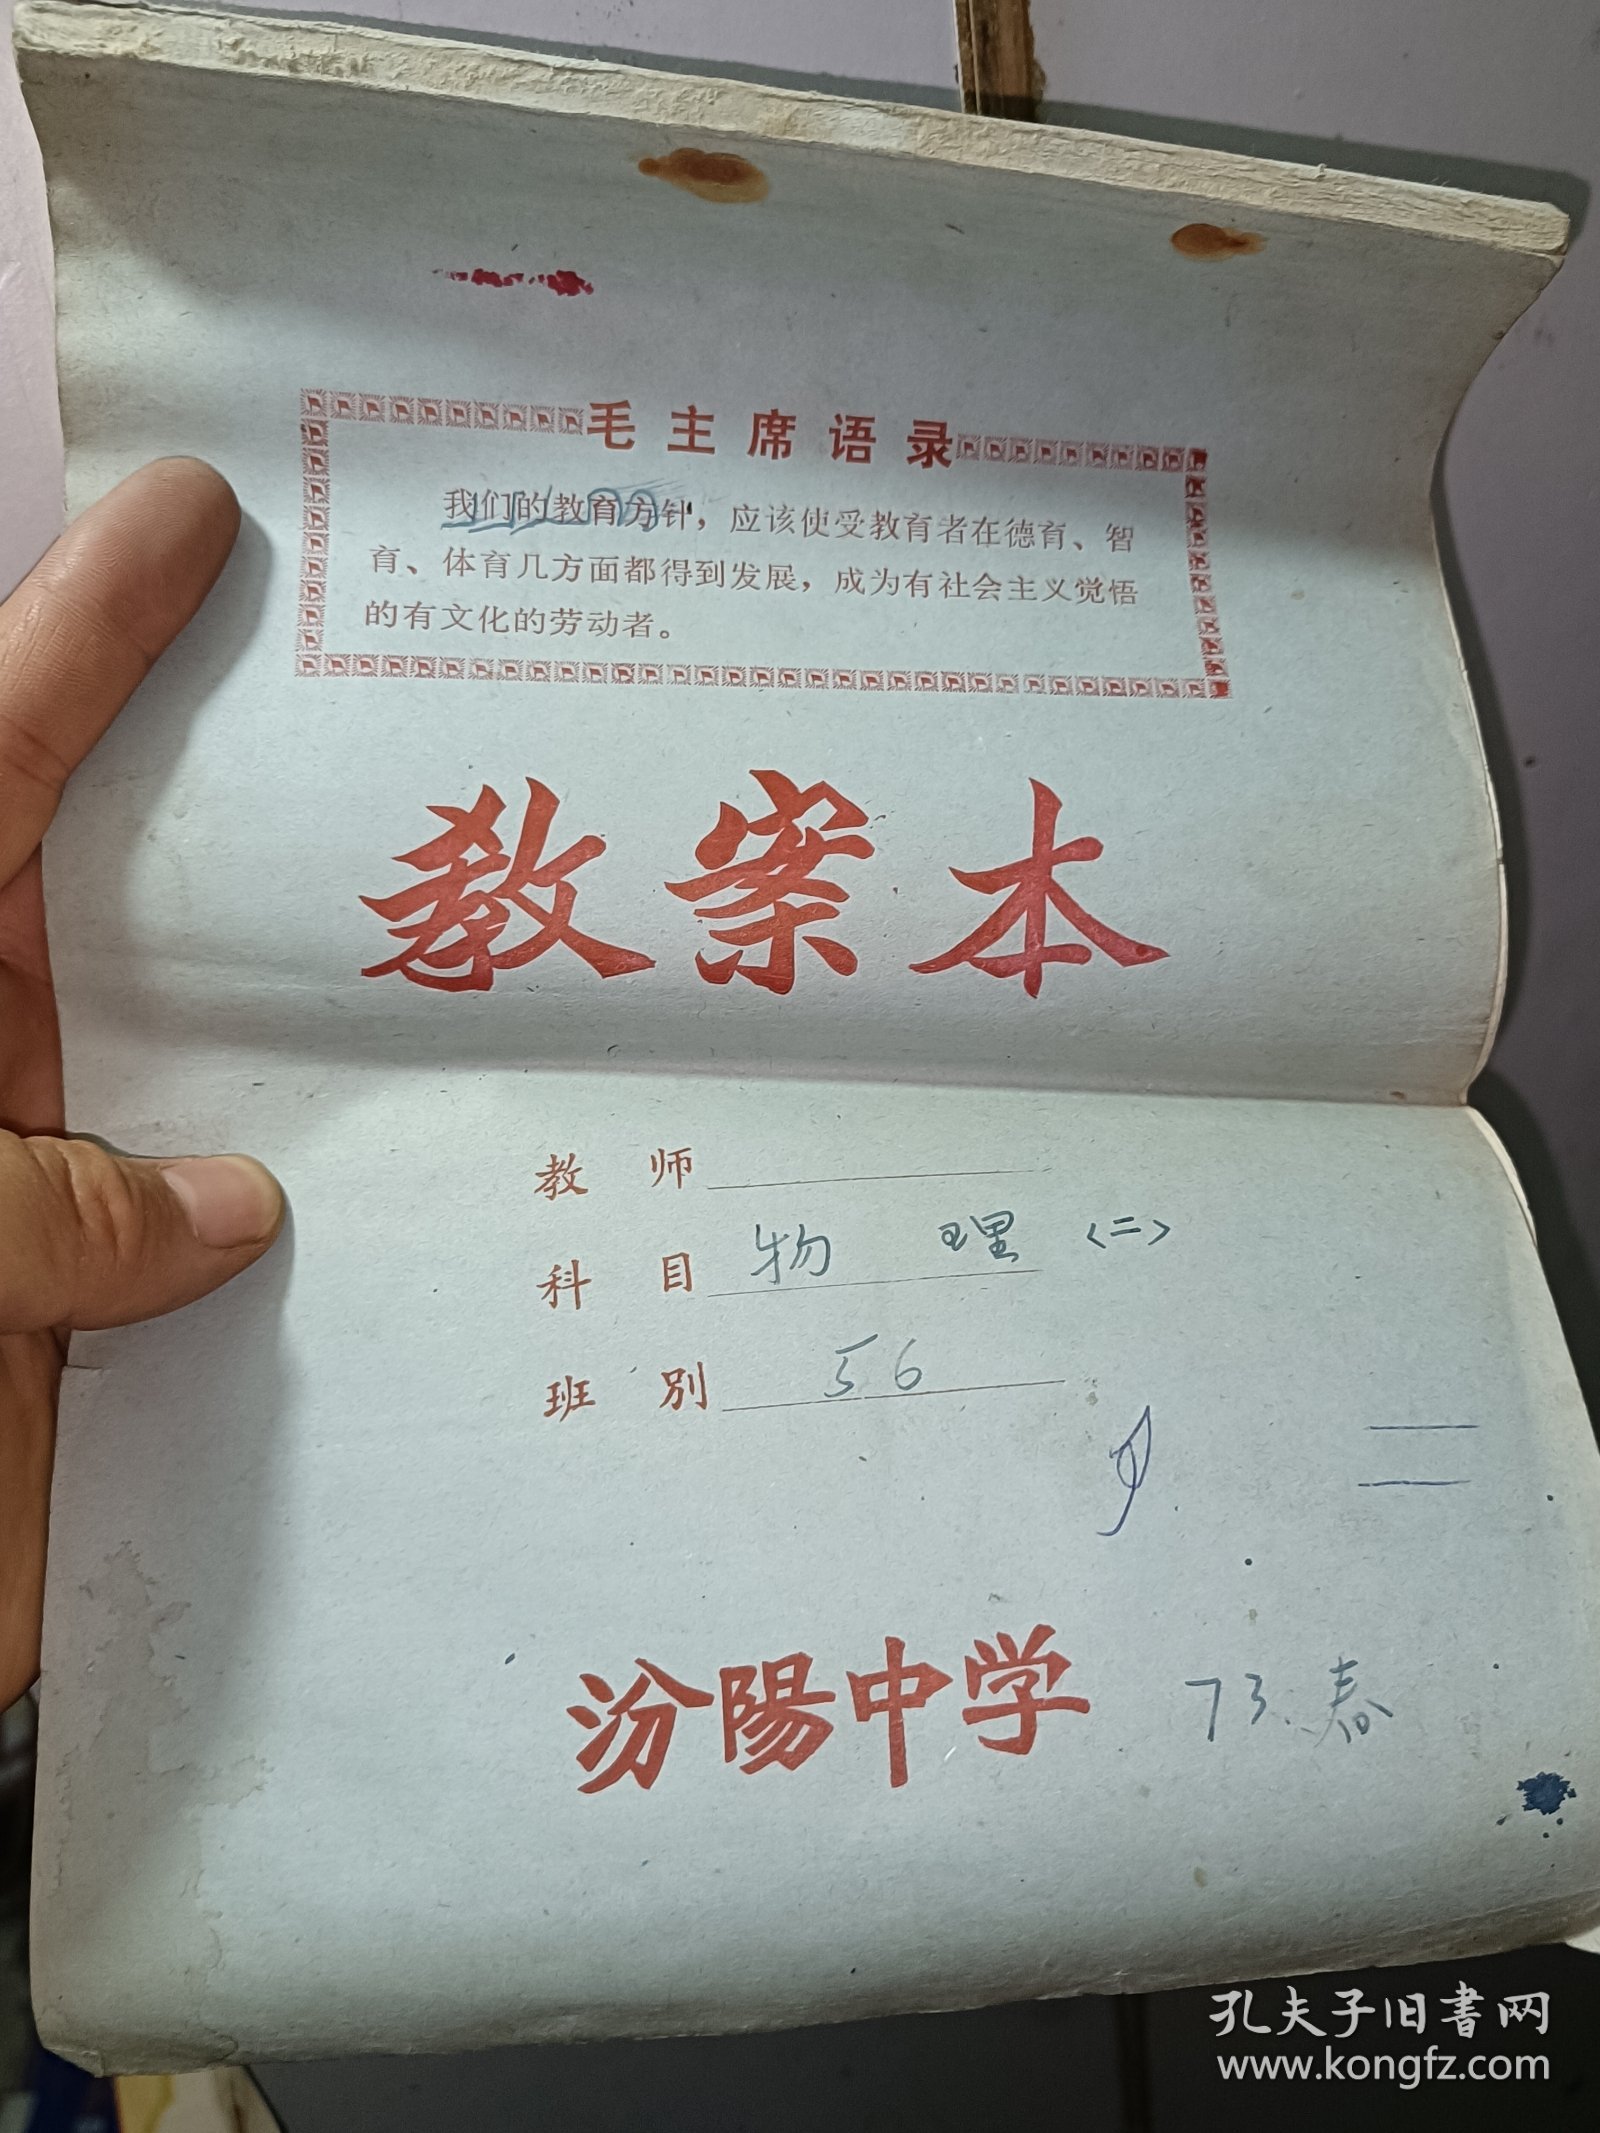 毛主席语录
我们的教育方针，应该使受教育者在德育、智
育、体育几方面都得到发展，成为有社会主义觉悟
的有文化的劳动者。
教案本
教 师
科 目 物 理〈二〉
班 别 56
汾陽中学 73.春
孔夫子旧书网
www.kongfz.com